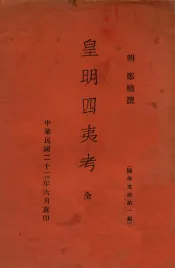 明 鄭曉撰
(國學文庫第一編)
皇明四夷考 全
中華民國二十二年六月重印